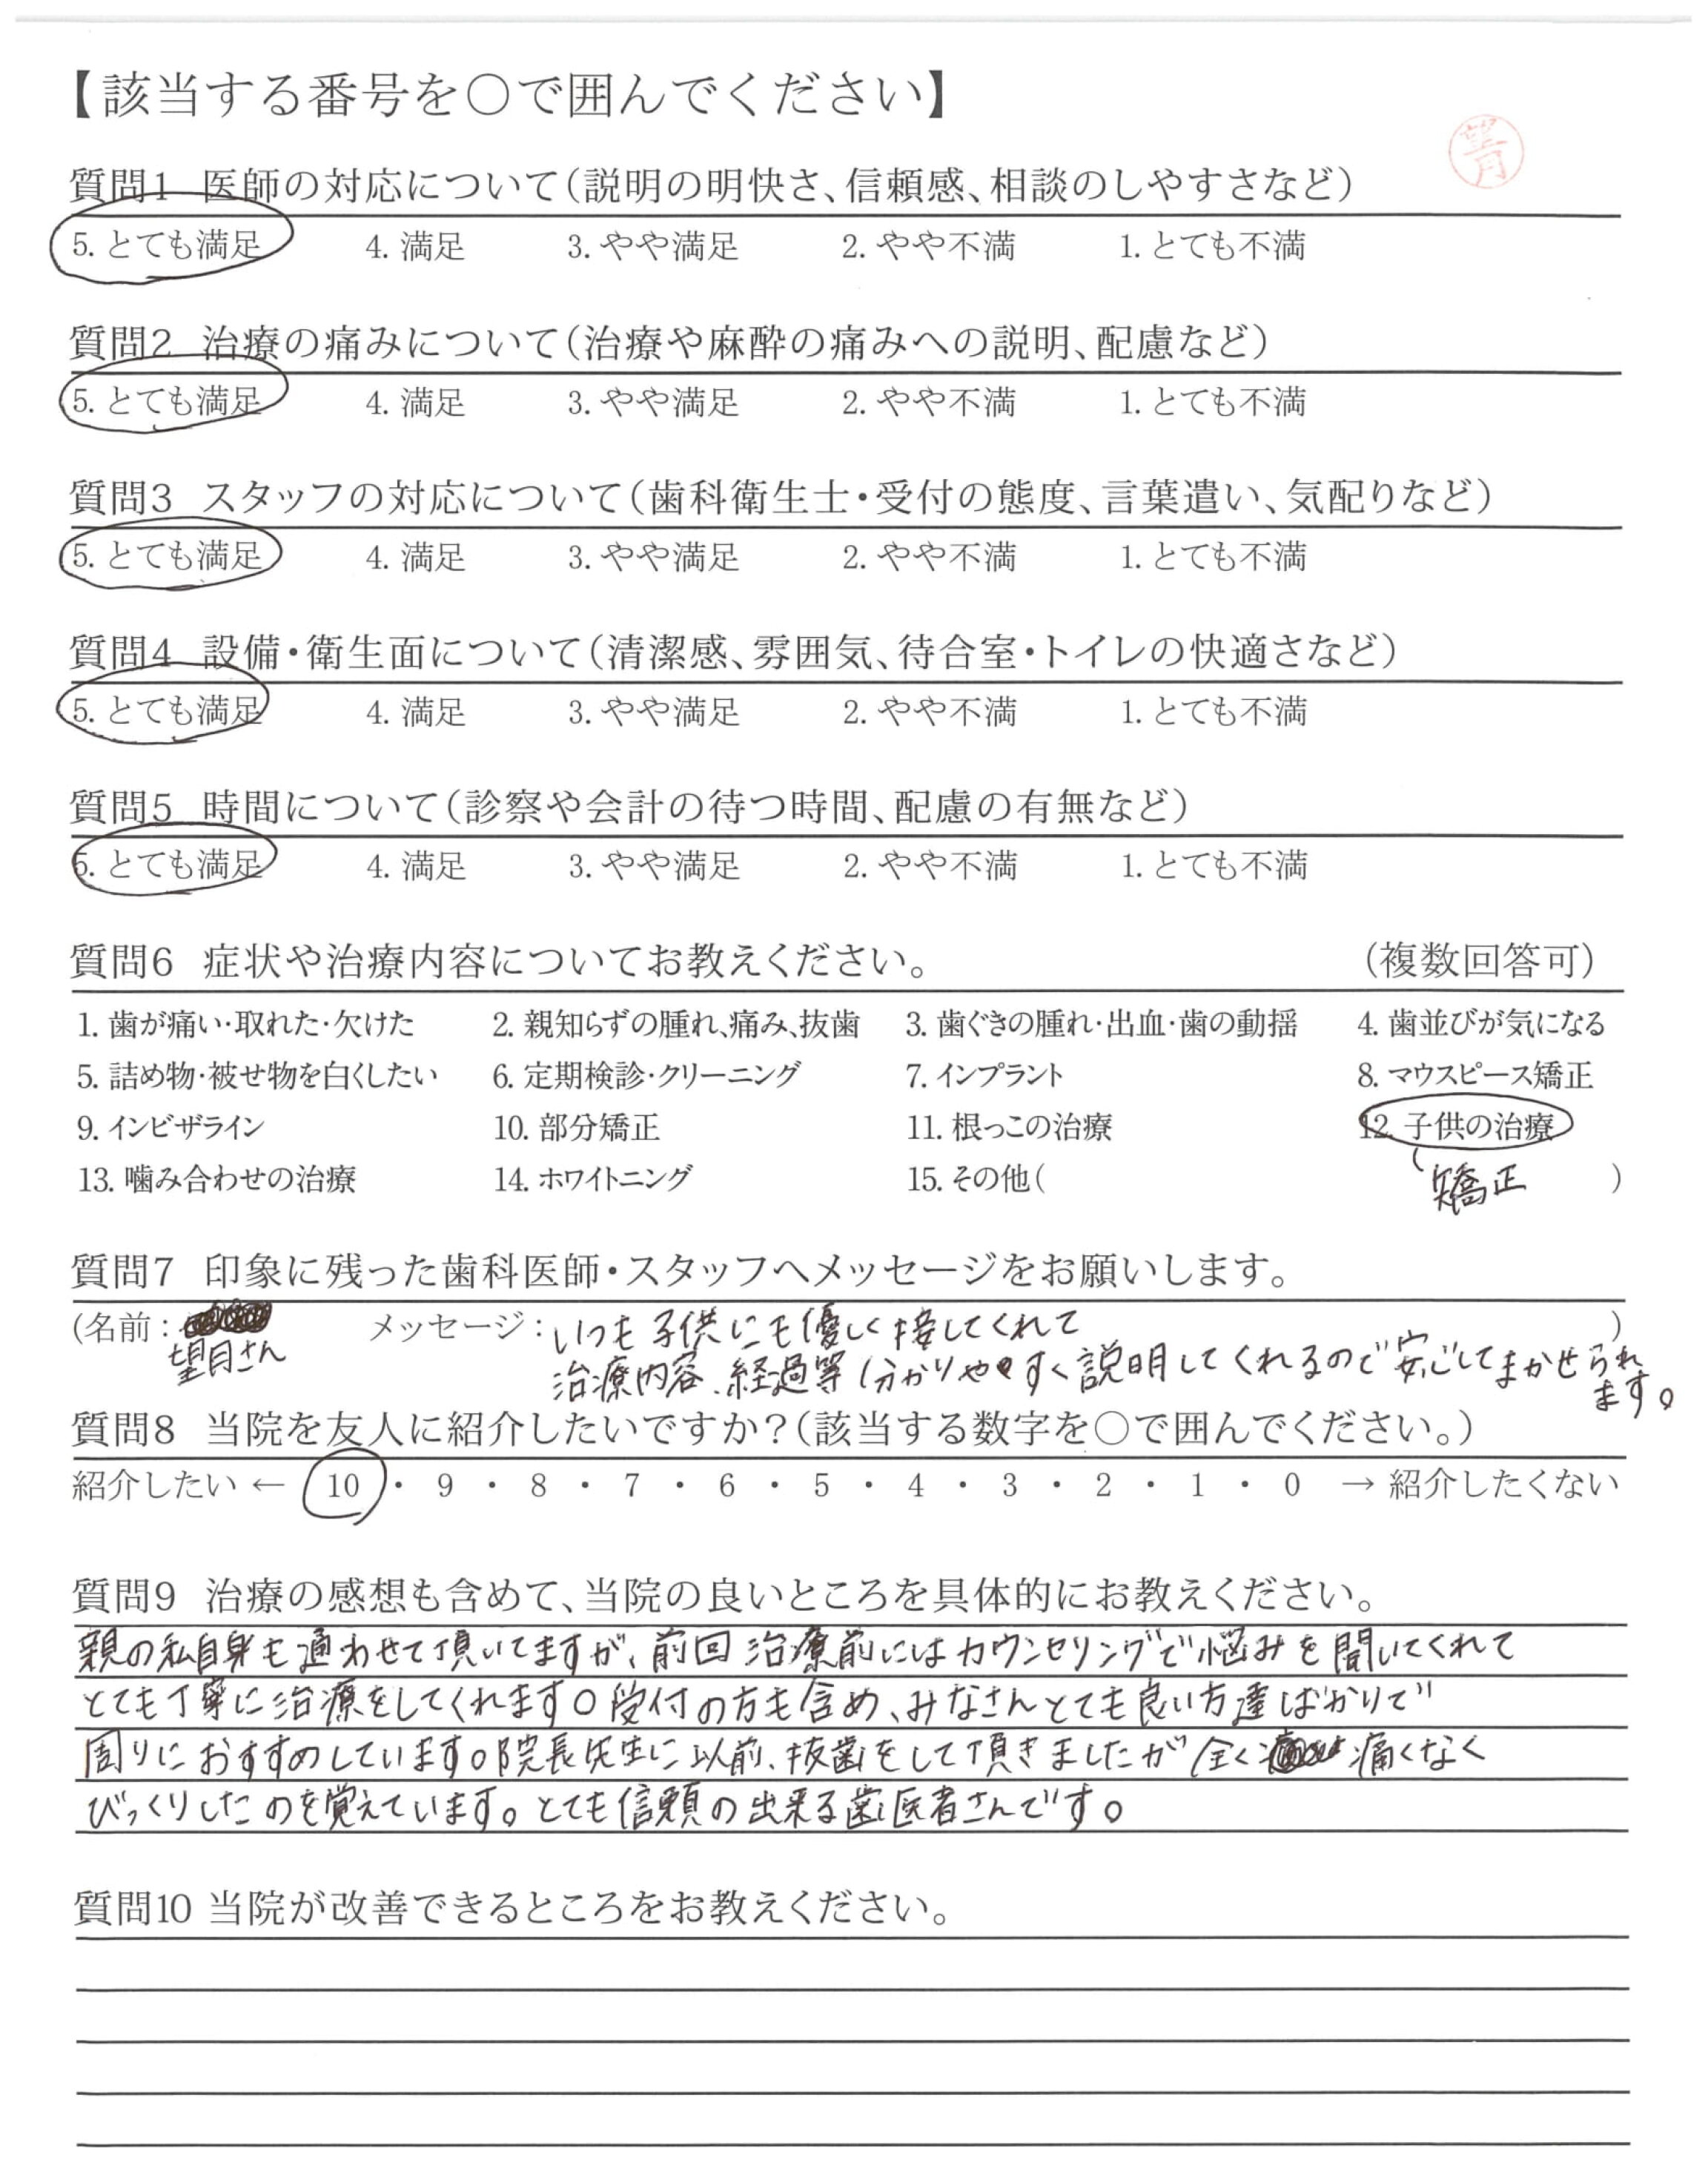 【該当する番号を○で囲んでください】
望月
質問1 医師の対応について(説明の明快さ、信頼感、相談のしやすさなど)
5. とても満足 4. 満足 3. やや満足 2. やや不満 1. とても不満
質問2 治療の痛みについて(治療や麻酔の痛みへの説明、配慮など)
5. とても満足 4. 満足 3. やや満足 2. やや不満 1. とても不満
質問3 スタッフの対応について(歯科衛生士・受付の態度、言葉遣い、気配りなど)
5. とても満足 4. 満足 3. やや満足 2. やや不満 1. とても不満
質問4 設備・衛生面について(清潔感、雰囲気、待合室・トイレの快適さなど)
5. とても満足 4. 満足 3. やや満足 2. やや不満 1. とても不満
質問5 時間について(診察や会計の待つ時間、配慮の有無など)
5. とても満足 4. 満足 3. やや満足 2. やや不満 1. とても不満
質問6 症状や治療内容についてお教えください。 (複数回答可)
1. 歯が痛い・取れた・欠けた 2. 親知らずの腫れ、痛み、抜歯 3. 歯ぐきの腫れ・出血・歯の動揺 4. 歯並びが気になる
5. 詰め物・被せ物を白くしたい 6. 定期検診・クリーニング 7. インプラント 8. マウスピース矯正
9. インビザライン 10. 部分矯正 11. 根っこの治療 12. 子供の治療
13. 噛み合わせの治療 14. ホワイトニング 15. その他( 矯正 )
質問7 印象に残った歯科医師・スタッフへメッセージをお願いします。
(名前: メッセージ: いつも子供にも優しく接してくれて )
望月さん 治療内容、経過等分かりやすく説明してくれるので安心してまかせられ
ます。
質問8 当院を友人に紹介したいですか?(該当する数字を○で囲んでください。)
紹介したい ← 10 ・ 9 ・ 8 ・ 7 ・ 6 ・ 5 ・ 4 ・ 3 ・ 2 ・ 1 ・ 0 → 紹介したくない
質問9 治療の感想も含めて、当院の良いところを具体的にお教えください。
親の私自身も通わせて頂いてますが、前回治療前にはカウンセリングで悩みを聞いてくれて
とても丁寧に治療をしてくれます。受付の方も含め、みなさんとても良い方達ばかりで
周りにおすすめしています。院長先生に以前、抜歯をして頂きましたが全く痛くなく
びっくりしたのを覚えています。とても信頼の出来る歯医者さんです。
質問10 当院が改善できるところをお教えください。